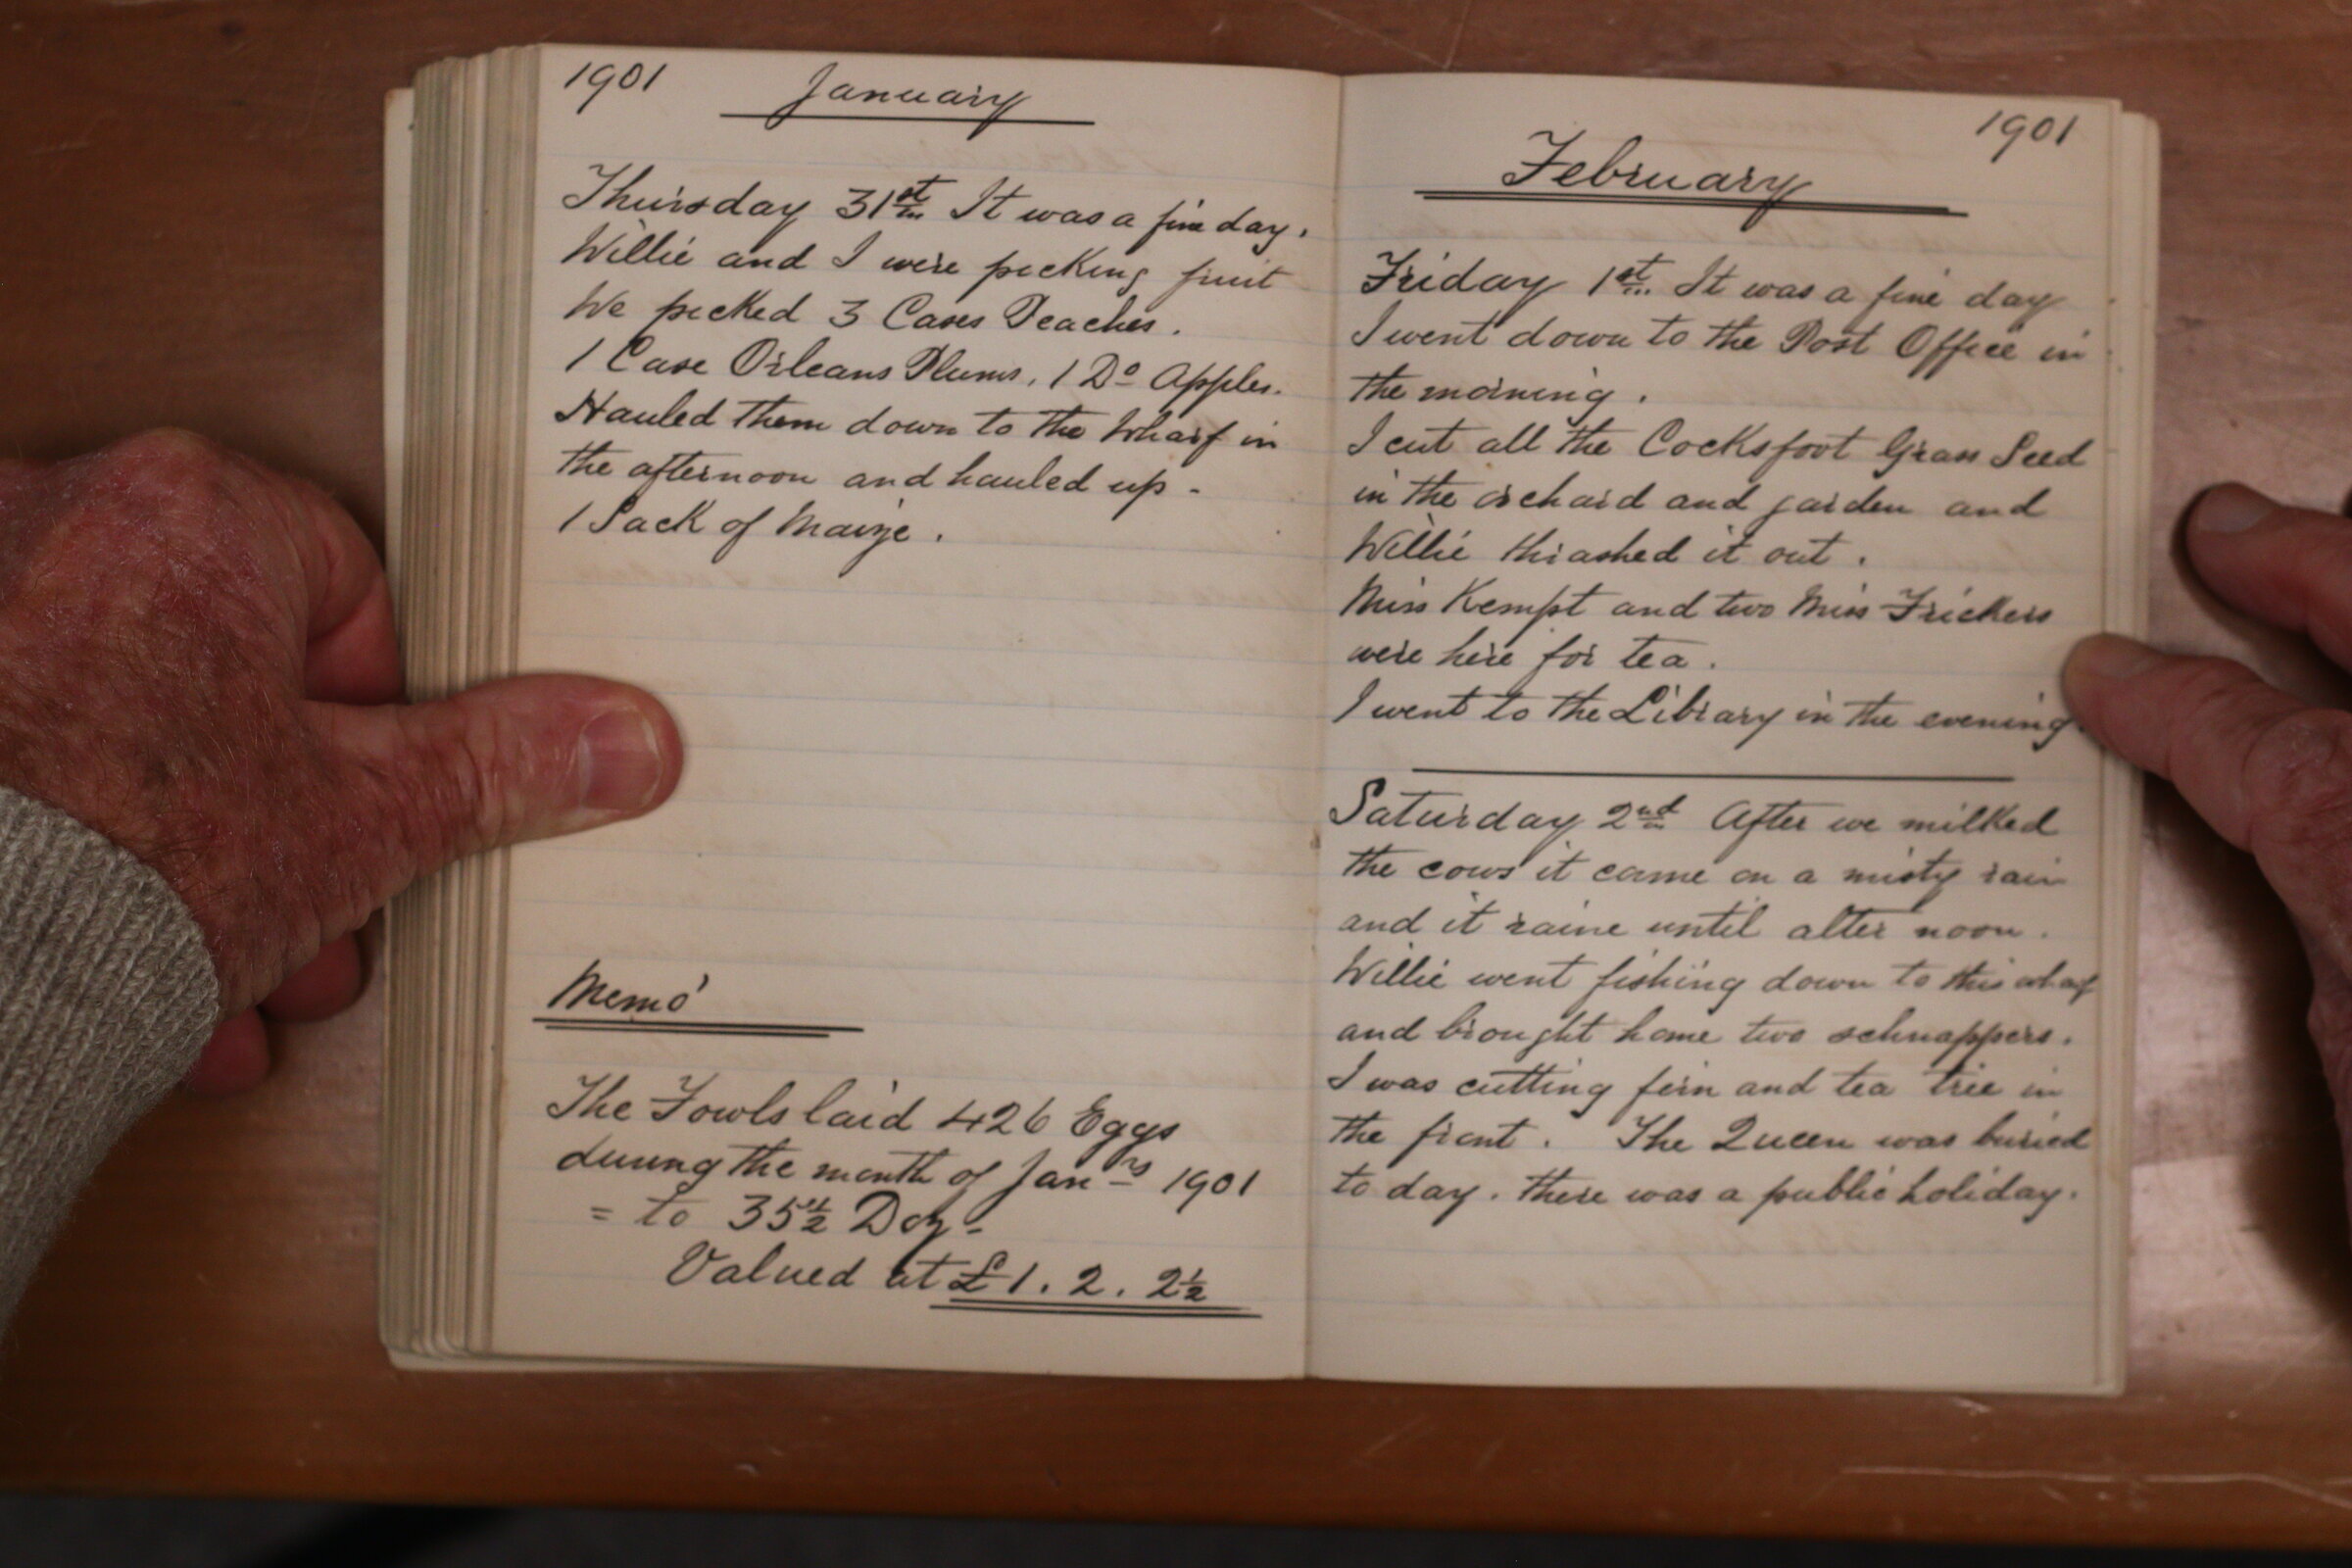 1901 January
Thursday 31st It was a fine day.
Willie and I were picking fruit
We picked 3 Cases Peaches.
1 Case Orleans Plums, 1 Do Apples.
Hauled them down to the Wharf in
the afternoon and hauled up -
1 Sack of Maize.
Memo
The Fowls laid 426 Eggs
during the month of Jany 1901
= to 35½ Doz -
Valued at £1. 2. 2½
1901
February
Friday 1st. It was a fine day
I went down to the Post Office in
the morning.
I cut all the Cocksfoot Grass Seed
in the orchard and garden and
Willie thrashed it out.
Miss Kempt and two Miss Frickers
were here for tea.
I went to the Library in the evening.
Saturday 2nd After we milked
the cows it came on a misty rain
and it raine until alter noon.
Willie went fishing down to this wharf
and brought home two schnappers.
I was cutting fern and tea tree in
the front. The Queen was buried
to day. there was a public holiday.